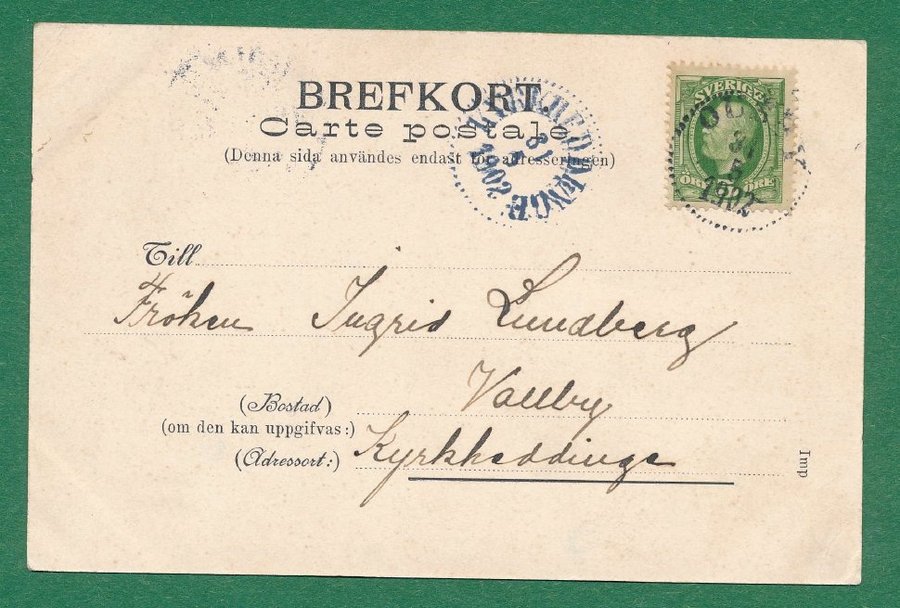 BREFKORT.
Carte postale
(Denna sida användes endast för adresseringen)
SVERIGE
ÖRE ÖRE
31
5
1902
31
5
1902
Till
Fröken Ingrid Lundberg
Vallby
(Bostad)
(om den kan uppgifvas:)
(Adressort:) Kyrkheddinge
Imp